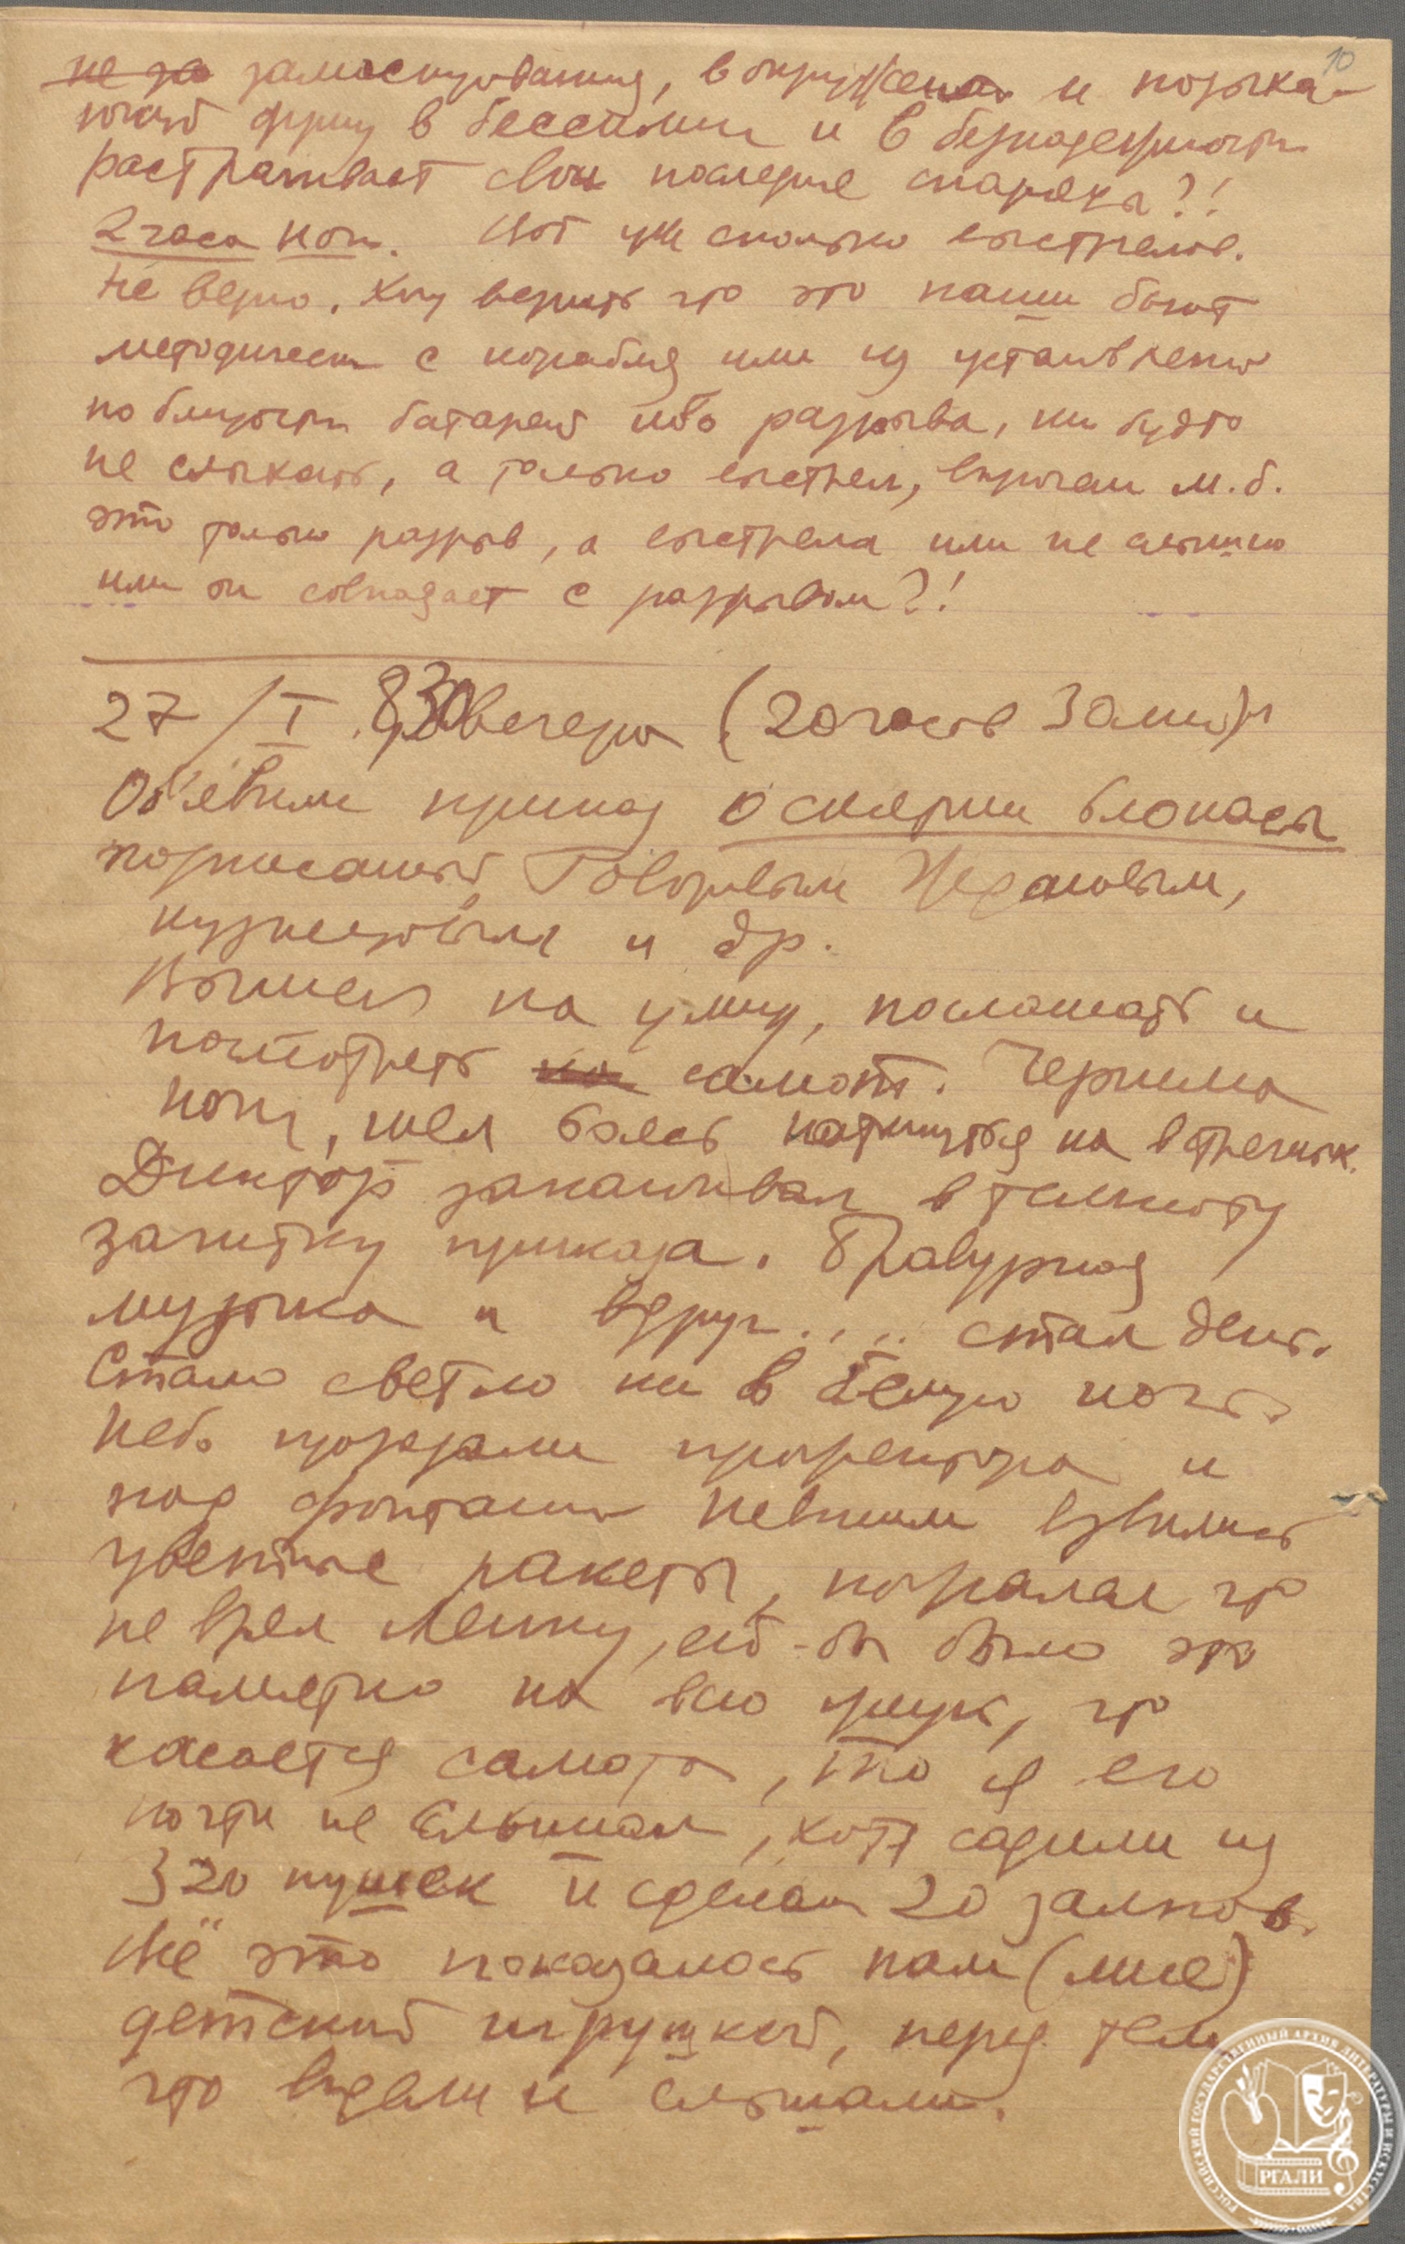 10
не за замаскированная, в окружении и
в бессилии и в безнадежности
растрачивает свои последние снаряды?!
2 часа ночи. Вот уже сколько выстрелов.
Не верю. Хочу верить что это наши бьют
методически с корабля или из установленной
по близости батареи ибо разрыва, как будто
не слыхать, а только выстрел, впрочем м.б.
это только разрыв, а выстрела или не слышно
или он совпадает с разрывом?!
27/I. 8,30 вечера (20 часов 30 мин)
Объявили приказ о снятии блокады
подписанный Говоровым Ждановым,
Кузнецовым и др.
Вышел на улицу, послушать и
посмотреть салют. Чернила
ночи, шел боясь наткнуться на встречных.
Диктор заканчивал в темноту
зачитку приказа. Бравурная
музыка и вдруг.... стал день.
Стало светло как в белую ночь.
Небо прожгали прожектора и
над фонтанами Невскими взвились
цветные ракеты, пожалел что
не взял Ленку, ей-бы было это
памятно на всю жизнь, что
касается салюта, то я его
почти не слышал, хотя садили из
320 пушек и сделали 20 залпов.
Всё это показалось нам (мне)
детской игрушкой, перед тем
что видели и слышали.
РОССИЙСКИЙ ГОСУДАРСТВЕННЫЙ АРХИВ ЛИТЕРАТУРЫ И ИСКУССТВА
РГАЛИ